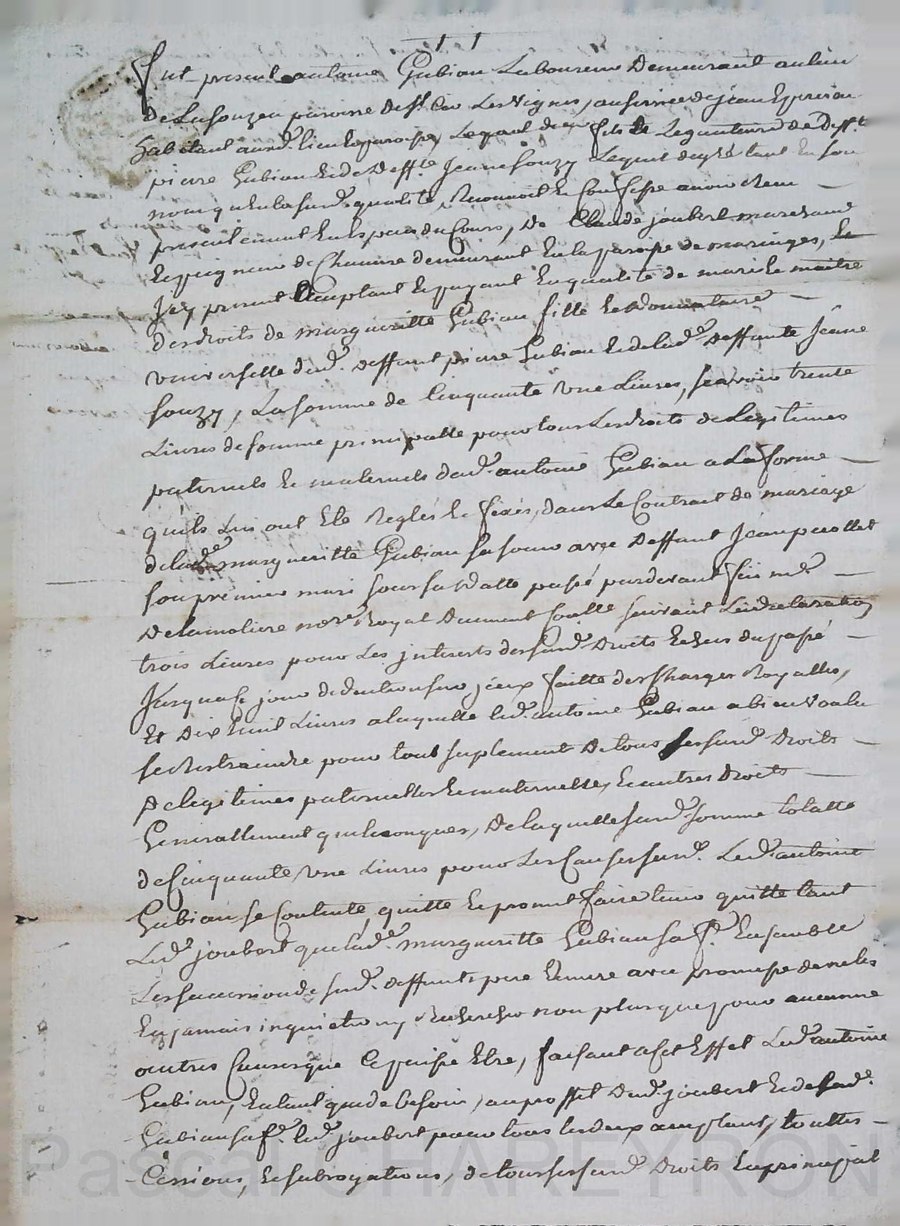 Fut present antoine Gubian Laboureur Demeurant au lieu
De La fouzea paroisse de St. Cir Les Vignes, au service de jean
habitant aud. lieu et paroisse, Lequel de gré fils et Legataire de Defft.
pierre Gubian et de Deffte. Jeanne fouzy Lequel de gré tant en son
nom qu'en la susd. qualité, Reconnoit et Confesse avoir Reçu
presentement en Especes du Cours, De Claude joubert marchand
et de Chamire demeurant en la paroisse de maringes, et
Icy present acceptant et payant En qualité de mari et maitre
des droits de margueritte Gubian fille et donnataire
universelle dud. deffunt pierre Gubian et de lad. Deffunte Jeanne
fouzy, La somme de Cinquante une Livres, scavoir trente
Livres de somme principalle pour tous Les droits de Legitimes
paternels et maternels dud. antoine Gubian a la forme
qu'ils Lui ont Eté Reglés et fixés, dans Le Contract de mariage
de lad. margueritte Gubian sa soeur avec Deffunt Jean perollet
son premier mari sous sa datte passé pardevant feu me.
Delamoliere nore. Royal Duement Conllé suivant Leur declaration
trois Livres pour Les interests des susd. Droits Echus du passé
Jusqu'a ce jour deduction sur jceux faitte des Charges Royalles,
Et Dix huit Livres a laquelle led. antoine Gubian a bien voulu
se Restraindre pour tout suplement De tous ses susd. Droits
De legitimes paternelles et maternelles et autres droits
Generallement quelconques, De laquelle susd. somme totalle
de Cinquante une Livres pour Les Causes susd. Led. antoine
Gubian se Contente, quitte et promet faire tenir quitte tant
Led. joubert que lad. margueritte Gubian sa f. Ensemble
Les successions de sesd. deffunts pere et mere avec promesse de ne les
En jamais inquietter ny Rechercher non plus que pour aucunne
autres Causes que Ce puisse Etre, faisant a cet Effet Led. antoine
Gubian, En tant que de besoin, au proffit dud. joubert et de lad.
Gubian sa f. led. joubert pour tous les deux acceptant, touttes
Cessions, et subrogations, de tous ses susd. Droits En principal
Pascal CHAREYRON